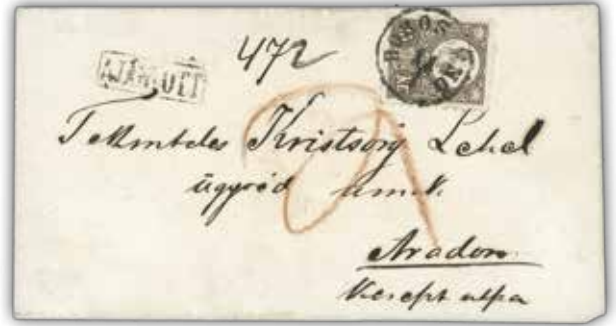 472
AJÁNLOTT
BOROS JENŐ
Tekintetes Kristsory Lehel
ügyvéd úrnak
Aradon